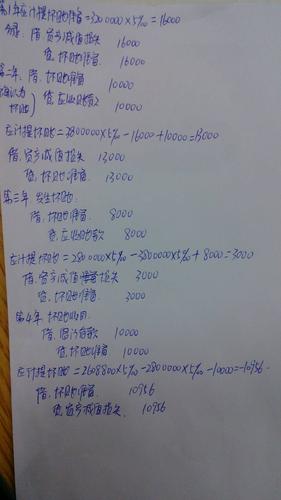 第1年应计提坏账准备=3200000×5‰=16000
分录:借:资产减值损失 16000
贷:坏账准备. 16000
第二年、借:坏账准备 10000
(确认为坏账) 贷:应收账款 10000
应计提坏账=3800000×5‰-16000+10000=13000
借:资产减值损失 13000
贷:坏账准备. 13000
第三年.发生坏账:
借:坏账准备. 8000
贷:应收账款 8000
应计提坏账=2800000×5‰-3800000×5‰+8000=3000
借:资产减值损失 3000
贷:坏账准备. 3000
第4年.坏账收回.
借:银行存款 10000
贷:坏账准备 10000
应计提坏账=2608800×5‰-2800000×5‰-10000=-10956.
借:坏账准备 10956
贷:资产减值损失. 10956